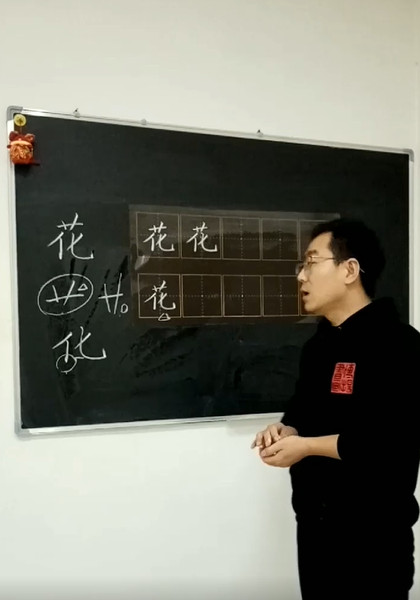 花
花 花
艹
花
化